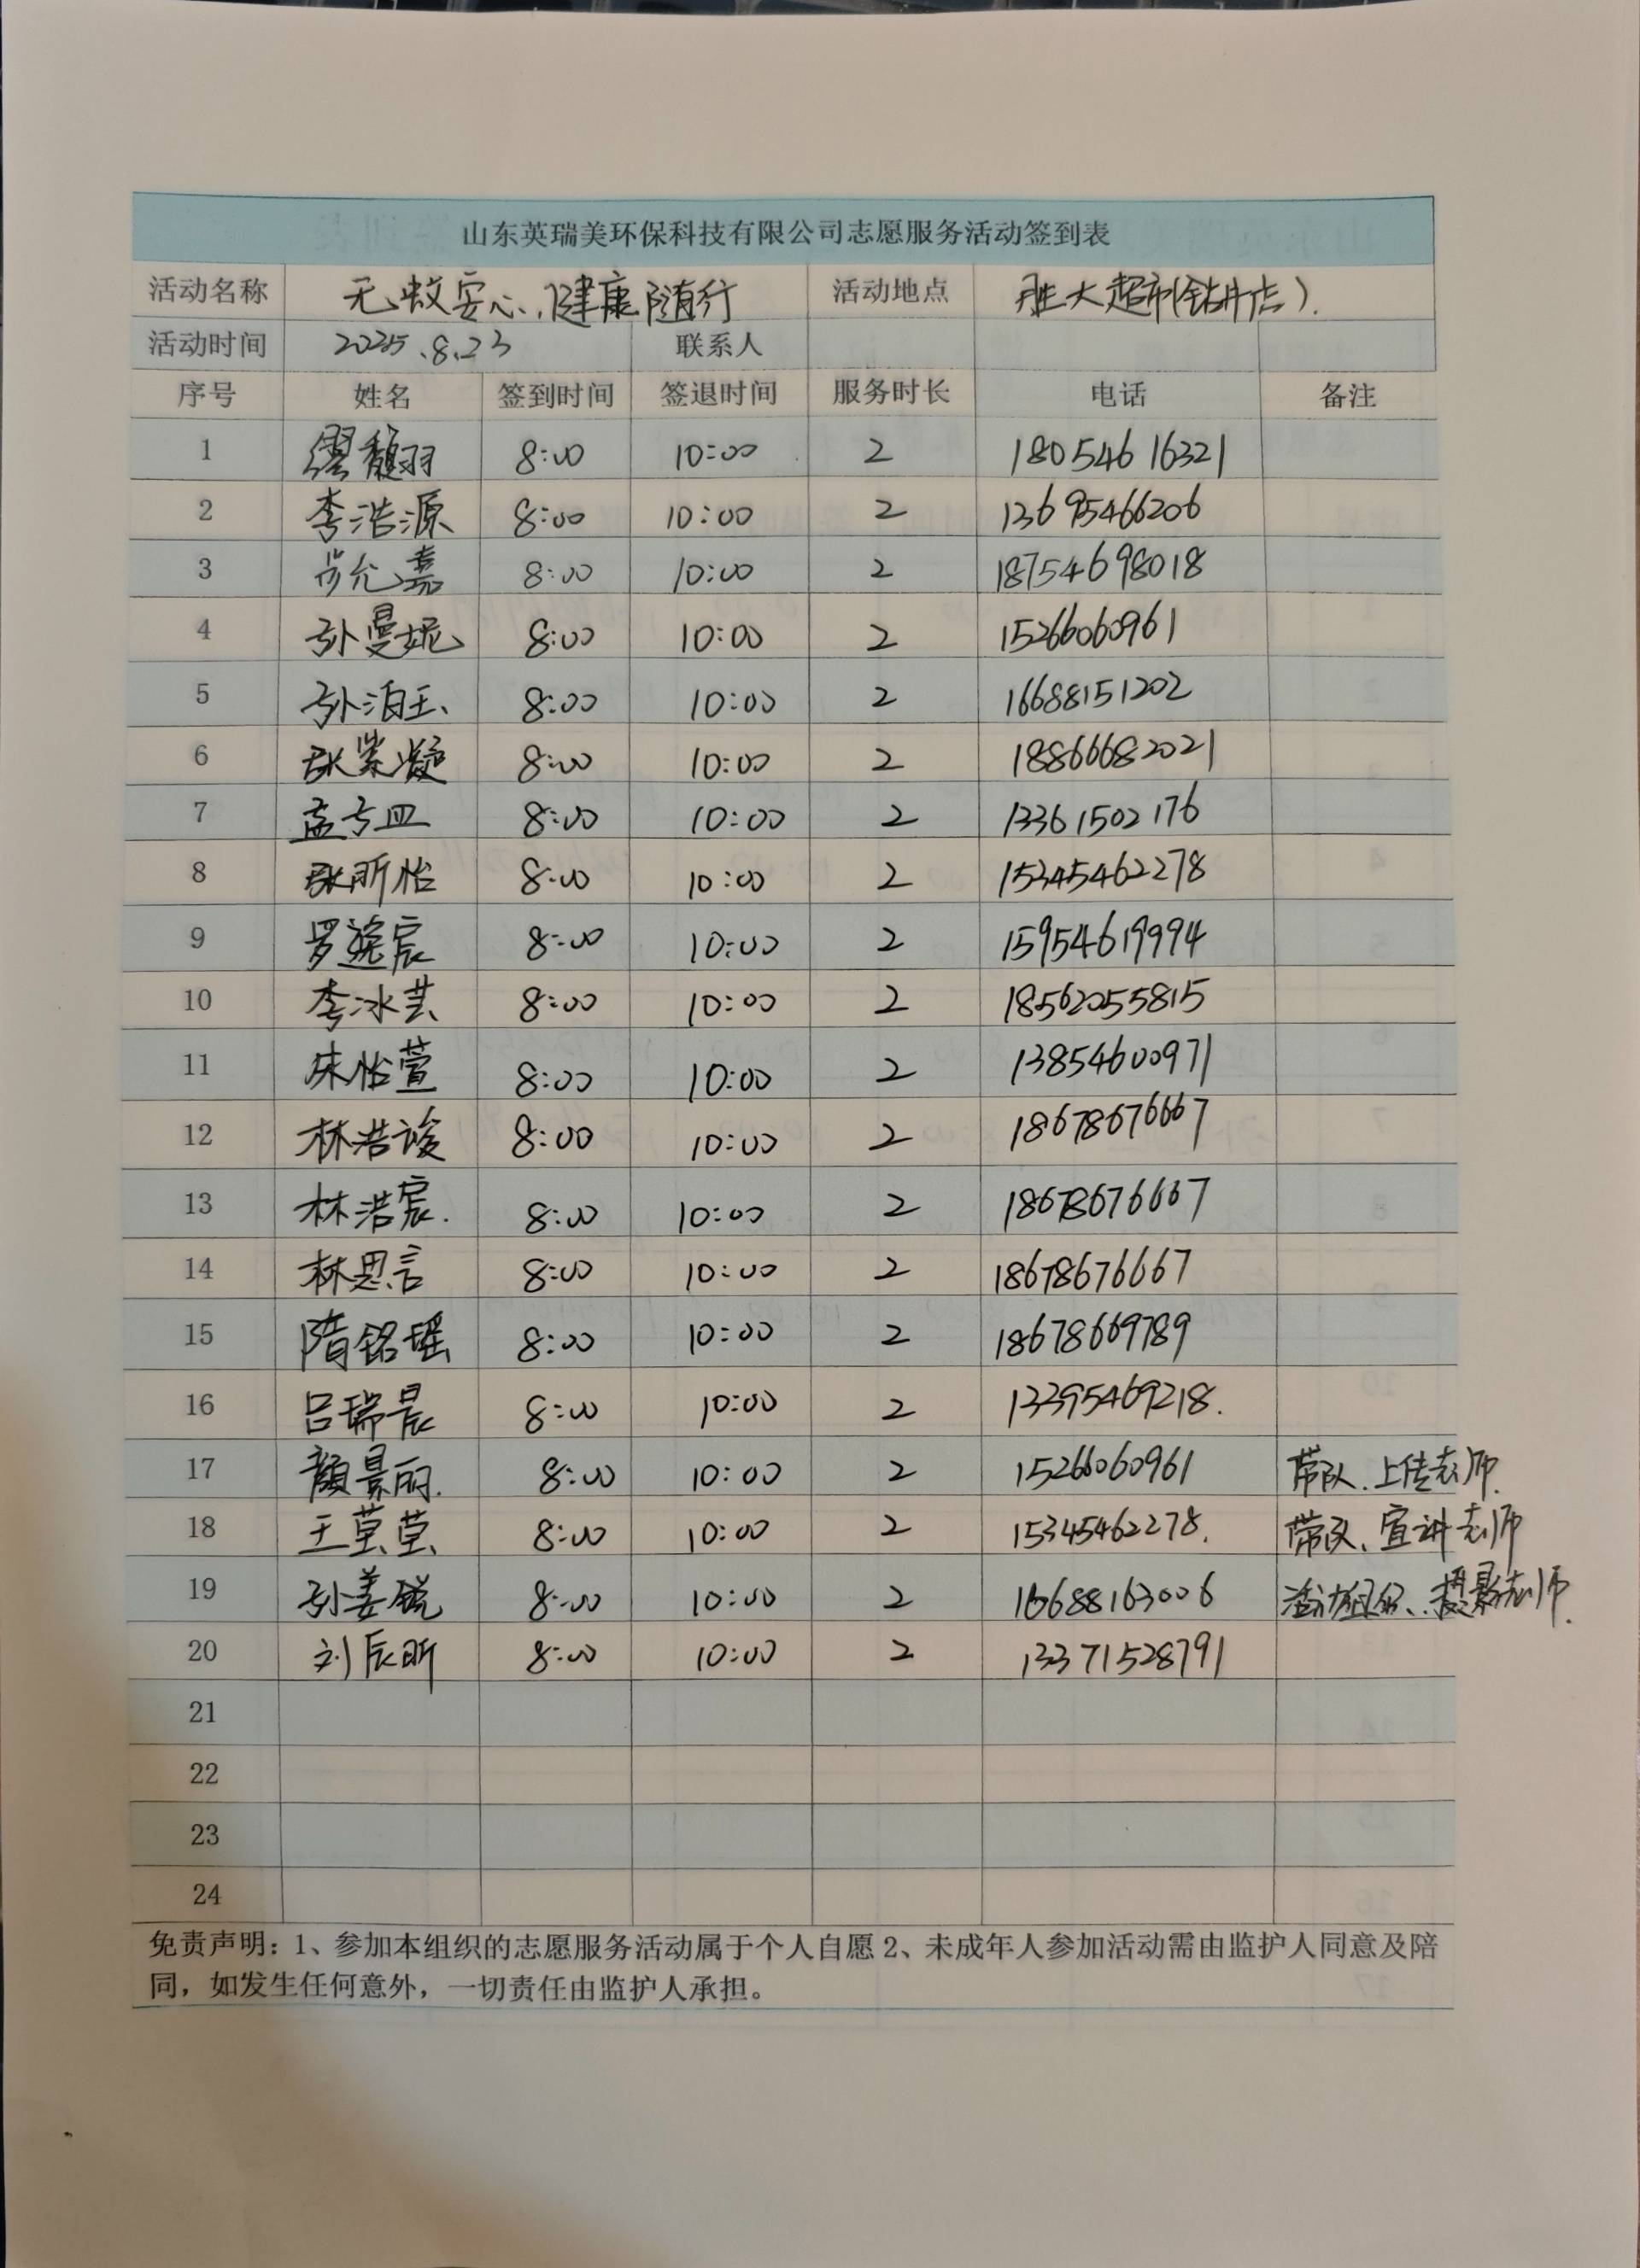 山东英瑞美环保科技有限公司志愿服务活动签到表
活动名称 无蚊安心,健康随行 活动地点 胜大超市(钻井店).
活动时间 2025.8.23 联系人
序号 姓名 签到时间 签退时间 服务时长 电话 备注
1 缪馥羽 8:00 10:00 2 18054616321
2 李浩源 8:00 10:00 2 13695466206
3 肖允嘉 8:00 10:00 2 18754698018
4 孙曼妮 8:00 10:00 2 15266060961
5 孙泊玉 8:00 10:00 2 16688151202
6 张紫凝 8:00 10:00 2 18866682021
7 8:00 10:00 2 13361502176
8 张昕怡 8:00 10:00 2 15345462278
9 罗宸 8:00 10:00 2 15954619994
10 李冰芸 8:00 10:00 2 18562055815
11 朱怡萱 8:00 10:00 2 13854600971
12 林浩诚 8:00 10:00 2 18678676667
13 林浩宸. 8:00 10:00 2 18678676667
14 林思言 8:00 10:00 2 18678676667
15 隋铭瑶 8:00 10:00 2 18678669789
16 吕瑞晨 8:00 10:00 2 13395469218.
17 颜景丽. 8:00 10:00 2 15266060961 带队、上传老师.
18 王莹莹 8:00 10:00 2 15345462278. 带队、宣讲老师
19 孙姜锐 8:00 10:00 2 16688163006 活动组织、摄影老师.
20 刘辰昕 8:00 10:00 2 13371528791
21
22
23
24
免责声明：1、参加本组织的志愿服务活动属于个人自愿2、未成年人参加活动需由监护人同意及陪
同，如发生任何意外，一切责任由监护人承担。